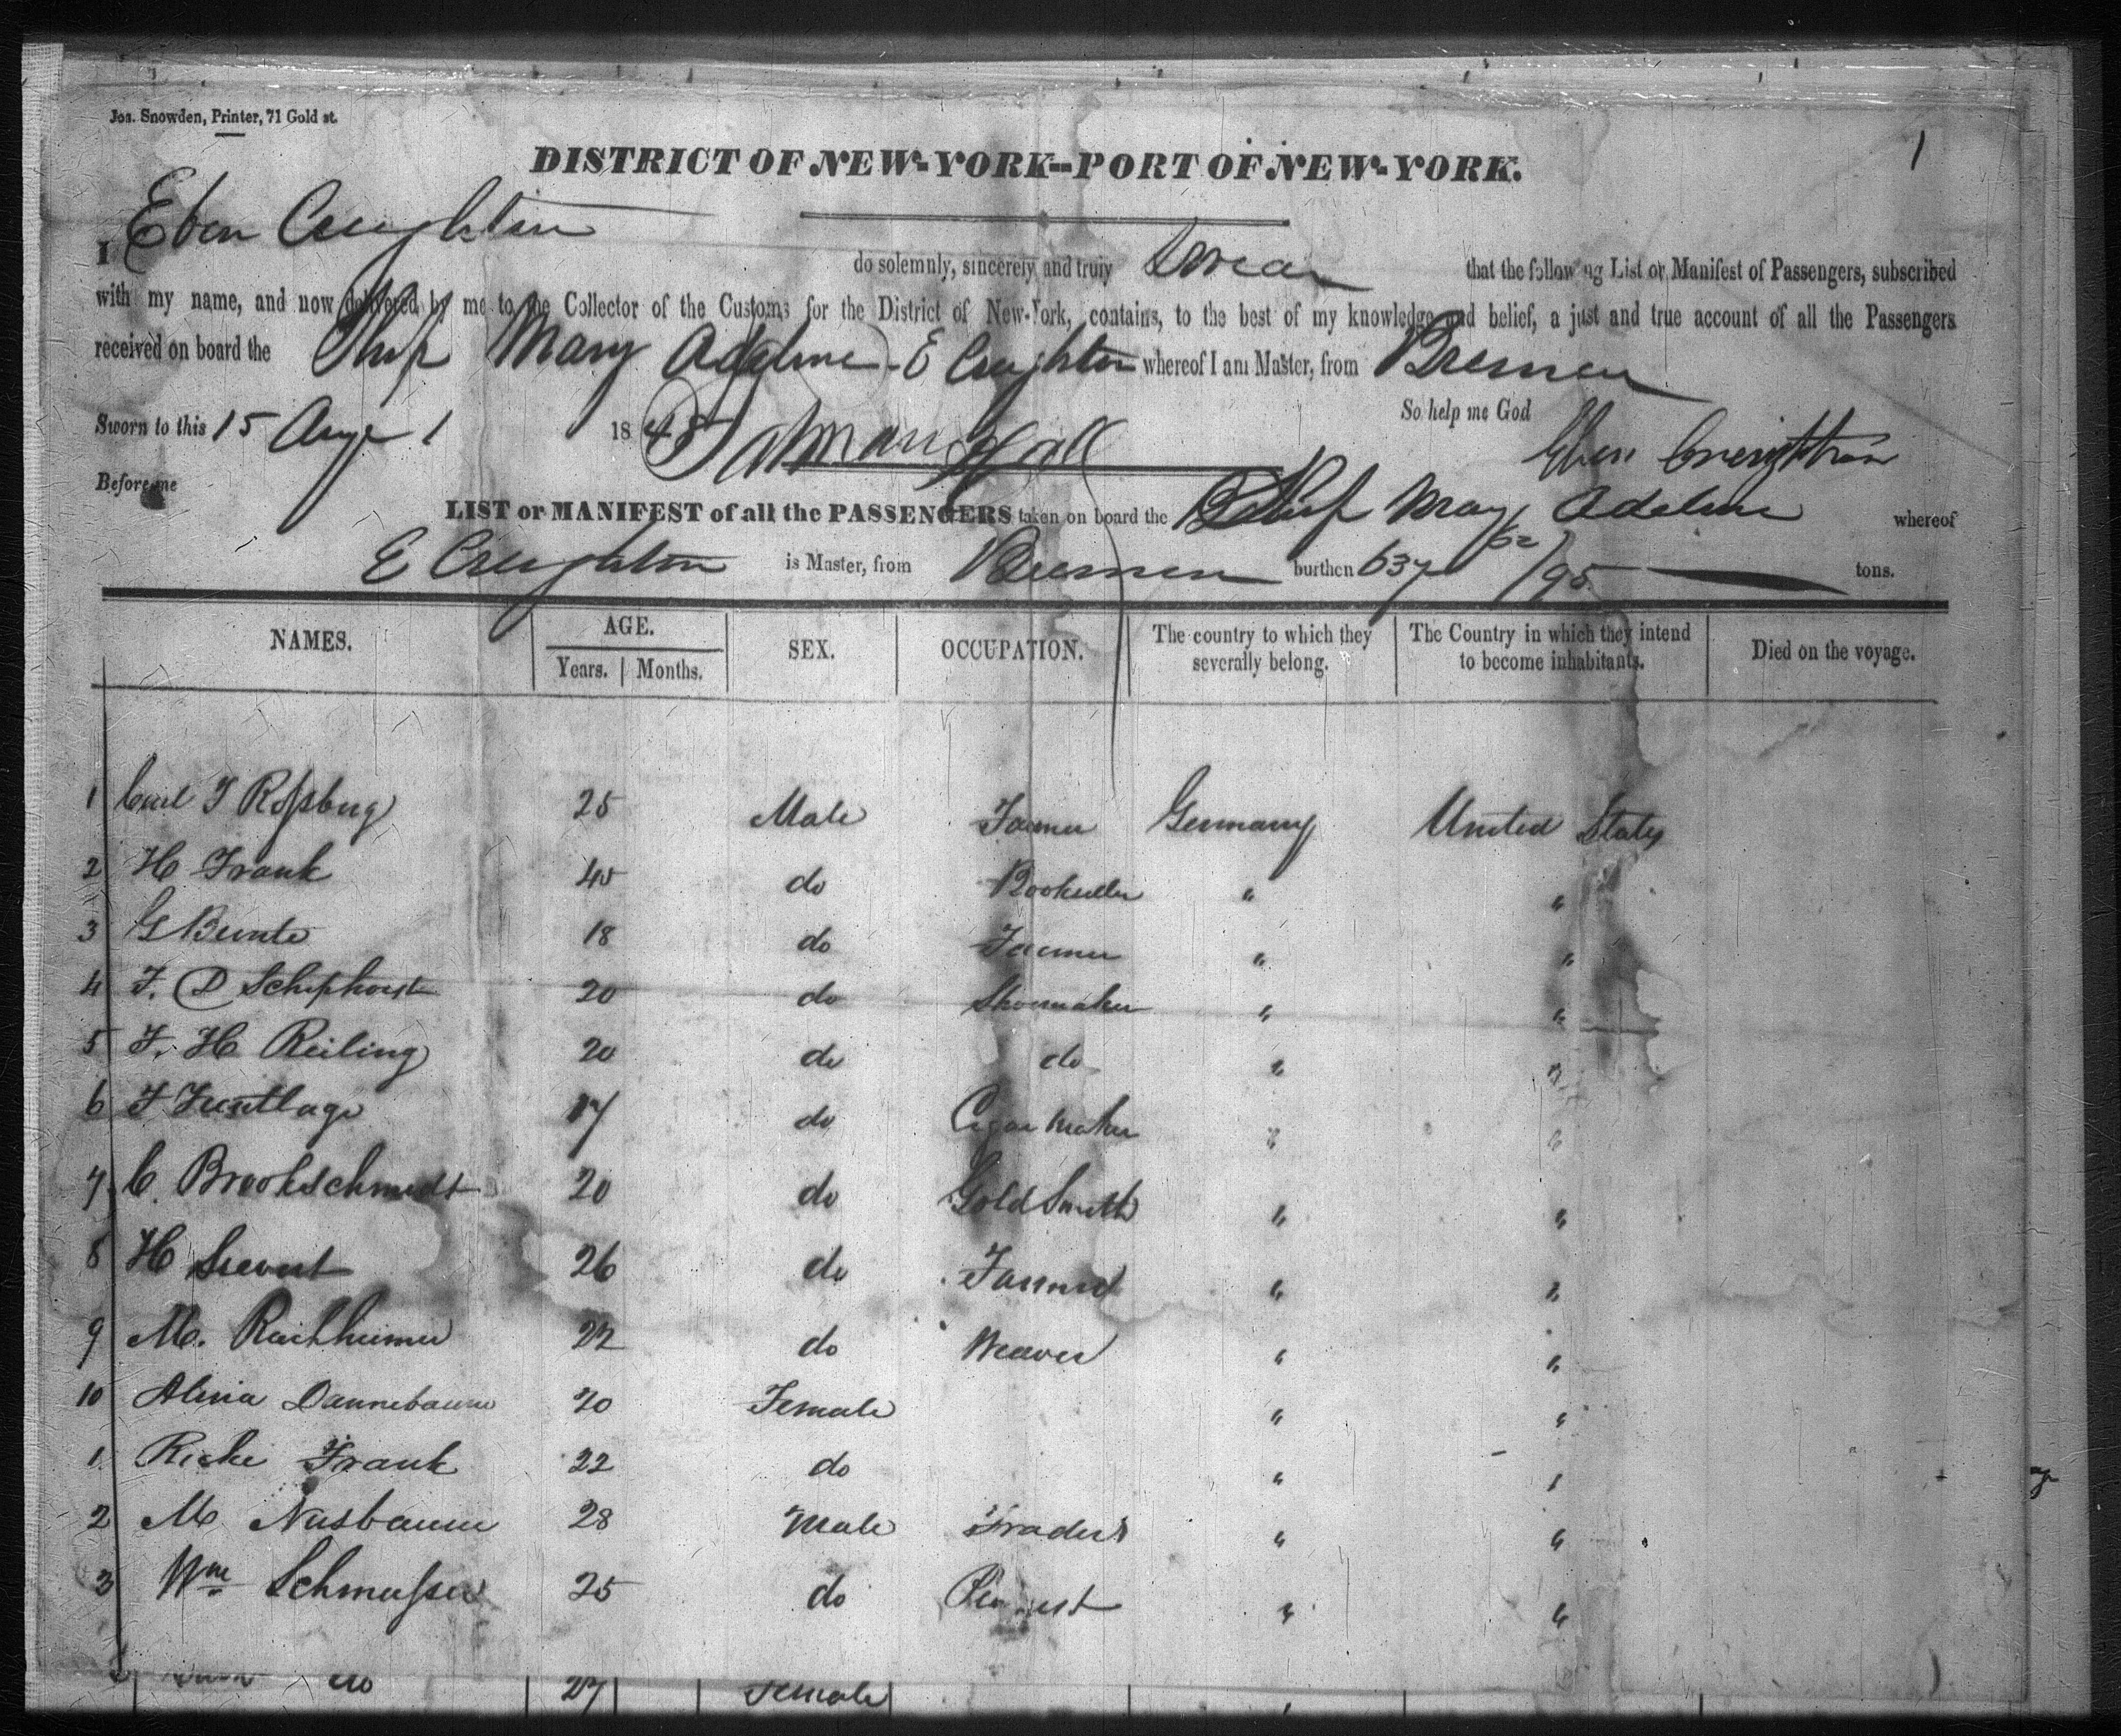 Jos. Snowden, Printer, 71 Gold st.
1
DISTRICT OF NEW-YORK--PORT OF NEW-YORK.
I Eben Creighton do solemnly, sincerely and truly swear that the following List or Manifest of Passengers, subscribed
with my name, and now delivered by me to the Collector of the Customs for the District of New-York, contains, to the best of my knowledge and belief, a just and true account of all the Passengers
received on board the Ship Mary Adeline E Creighton whereof I am Master, from Bremen
Sworn to this 15 Augt 1848 So help me God
Before me Hall Eben Creighton
LIST or MANIFEST of all the PASSENGERS taken on board the Ship Mary Adeline whereof
E Creighton is Master, from Bremen burthen 637 62/95 tons.
NAMES. AGE. Years. Months. SEX. OCCUPATION. The country to which they severally belong. The Country in which they intend to become inhabitants. Died on the voyage.
1 Carl F 25 Male Farmer Germany United States
2 H Frank 40 do Bookseller " "
3 G Bunte 18 do Farmer " "
4 F. D Schiphorst 20 do Shoemaker " "
5 F. H Reiling 20 do do " "
6 F 17 do Cigar maker " "
7 C. Brookschmidt 20 do Gold Smith " "
8 H Sievert 26 do Farmer " "
9 M. 22 do Weaver " "
10 Dannebaum 20 Female " "
1 Ricke Frank 22 do " "
2 M Nusbaum 28 Male Trader " "
3 Wm 25 do " "
do 27 Female